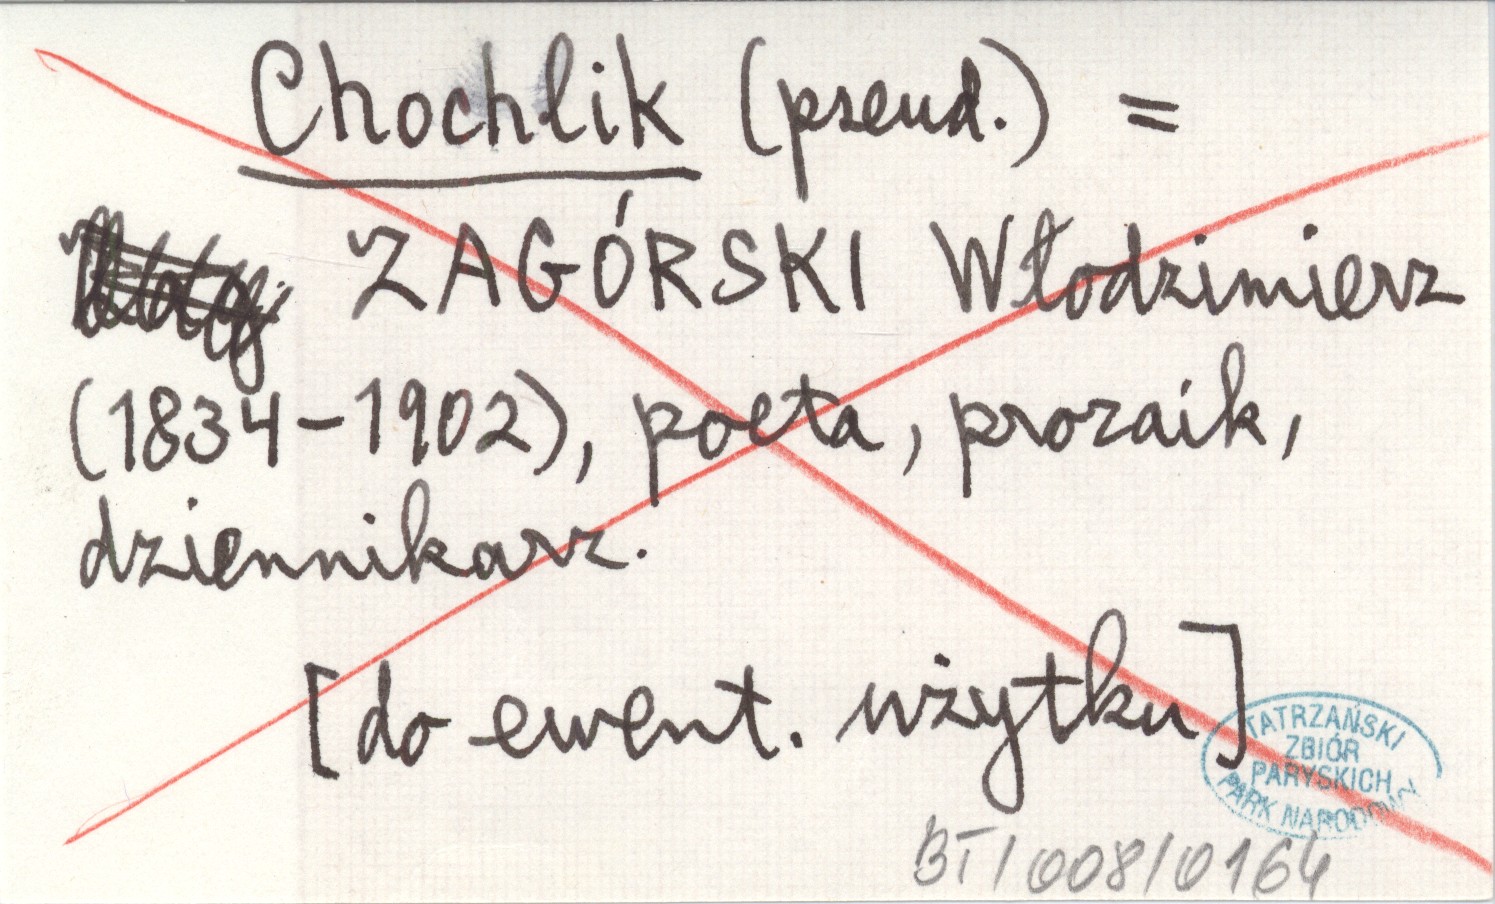 Chochlik (pseud.) =
ZAGÓRSKI Włodzimierz
(1834-1902), poeta, prozaik,
dziennikarz.
[do ewent. użytku]
TATRZAŃSKI
ZBIÓR
PARYSKICH
PARK NARODOWY
BT/008/0164